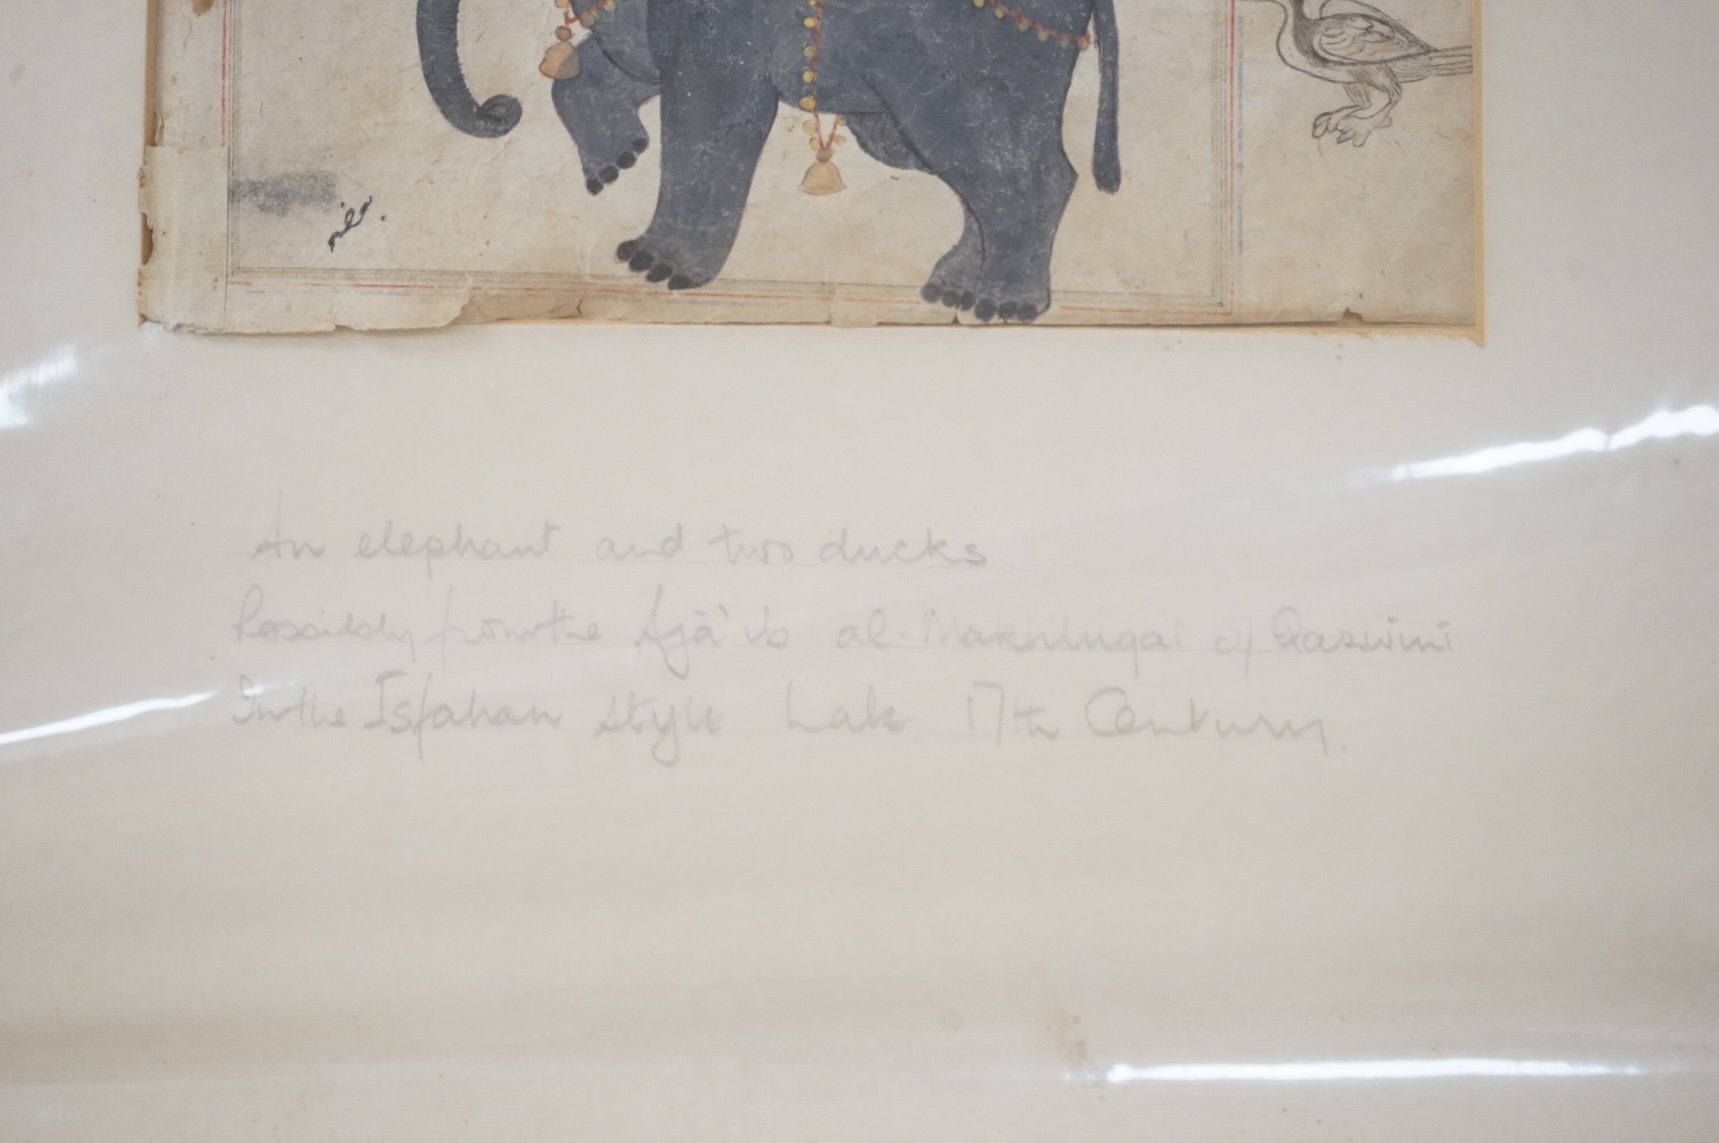 An elephant and two ducks
Possibly from the Ajā'ib al-Makhluqat of Qaswini
In the Isfahan style Late 17th Century.